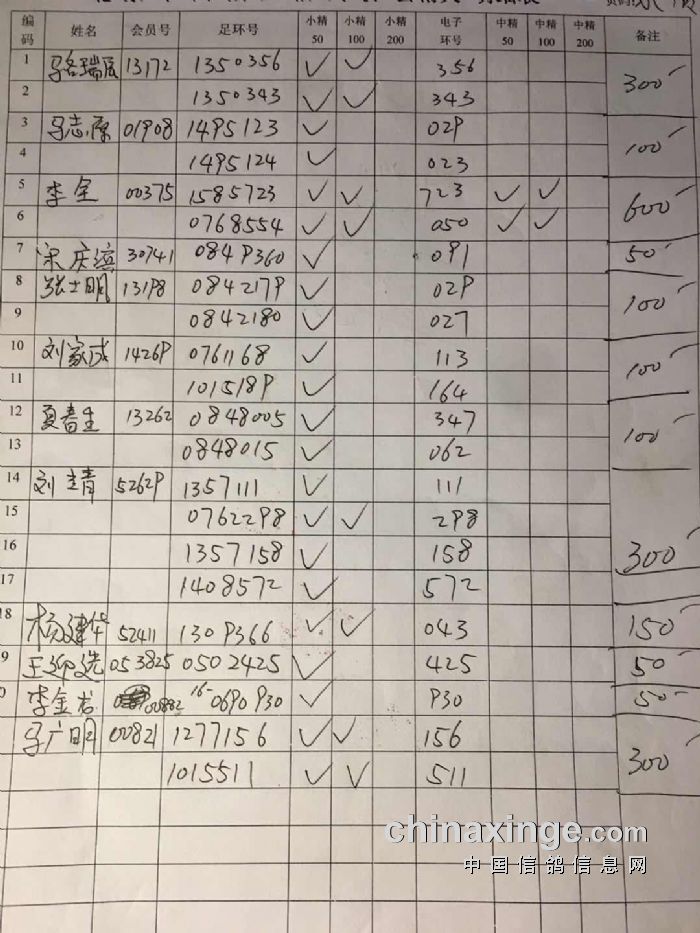 编码 姓名 会员号 足环号 小精50 小精100 小精200 电子环号 中精50 中精100 中精200 备注
1 13172 1350356 ✓ ✓ 356 300
2 1350343 ✓ ✓ 343
3 马志源 01908 1495123 ✓ 029 100
4 1495124 ✓ 023
5 李全 00375 1585723 ✓ ✓ 723 ✓ ✓ 600
6 0768554 ✓ ✓ 050 ✓ ✓
7 宋庆滨 30741 0849360 ✓ 091 50
8 张士明 13198 0842179 ✓ 029 100
9 0842180 ✓ 027
10 刘家成 14269 0761168 ✓ 113 100
11 1015189 ✓ 164
12 夏春生 13262 0848005 ✓ 347 100
13 0848015 ✓ 062
14 刘靖 52629 1357111 ✓ 111 300
15 0762298 ✓ ✓ 298
16 1357158 ✓ 158
17 1408572 ✓ 572
18 杨建华 52411 1309366 ✓ ✓ 043 150
9 王迎选 053825 0502425 ✓ 425 50
0 李金 00882 16-0690930 ✓ 930 50
马广明 00821 1277156 ✓ ✓ 156 300
1015511 ✓ ✓ 511
chinaxinge.com
中国信鸽信息网